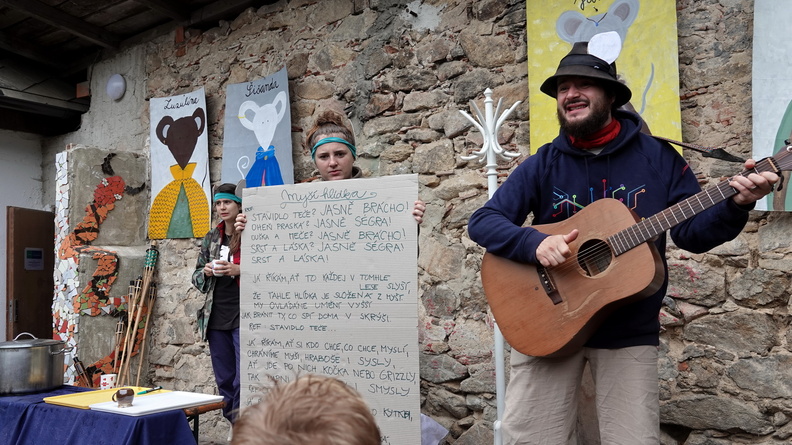 Luzulína
Šišanda
MYŠÍ HLÍDKA
REF: STAVIDLO TEČE? JASNĚ BRÁCHO!
OHEŇ PRASKÁ? JASNĚ SÉGRA!
OUŠKA A MEČE? JASNĚ BRÁCHO!
SRST A LÁSKA? JASNĚ SÉGRA!
SRST A LÁSKA!
JÁ ŘÍKÁM, AŤ TO KAŽDEJ V TOMHLE
LESE SLYŠÍ,
ŽE TAHLE HLÍDKA JE SLOŽENÁ Z MYŠÍ,
MY OVLÁDÁME UMĚNÍ VYŠŠÍ
JAK BRÁNIT TY, CO SPÍ DOMA V SKRÝŠI.
REF: STAVIDLO TEČE...
JÁ ŘÍKÁM, AŤ SI KDO CHCE, CO CHCE, MYSLÍ,
CHRÁNÍME MYŠI, HRABOŠE I SYSLY,
AŤ JDE PO NICH KOČKA NEBO GRIZZLY,
TAK
I SMYSLY